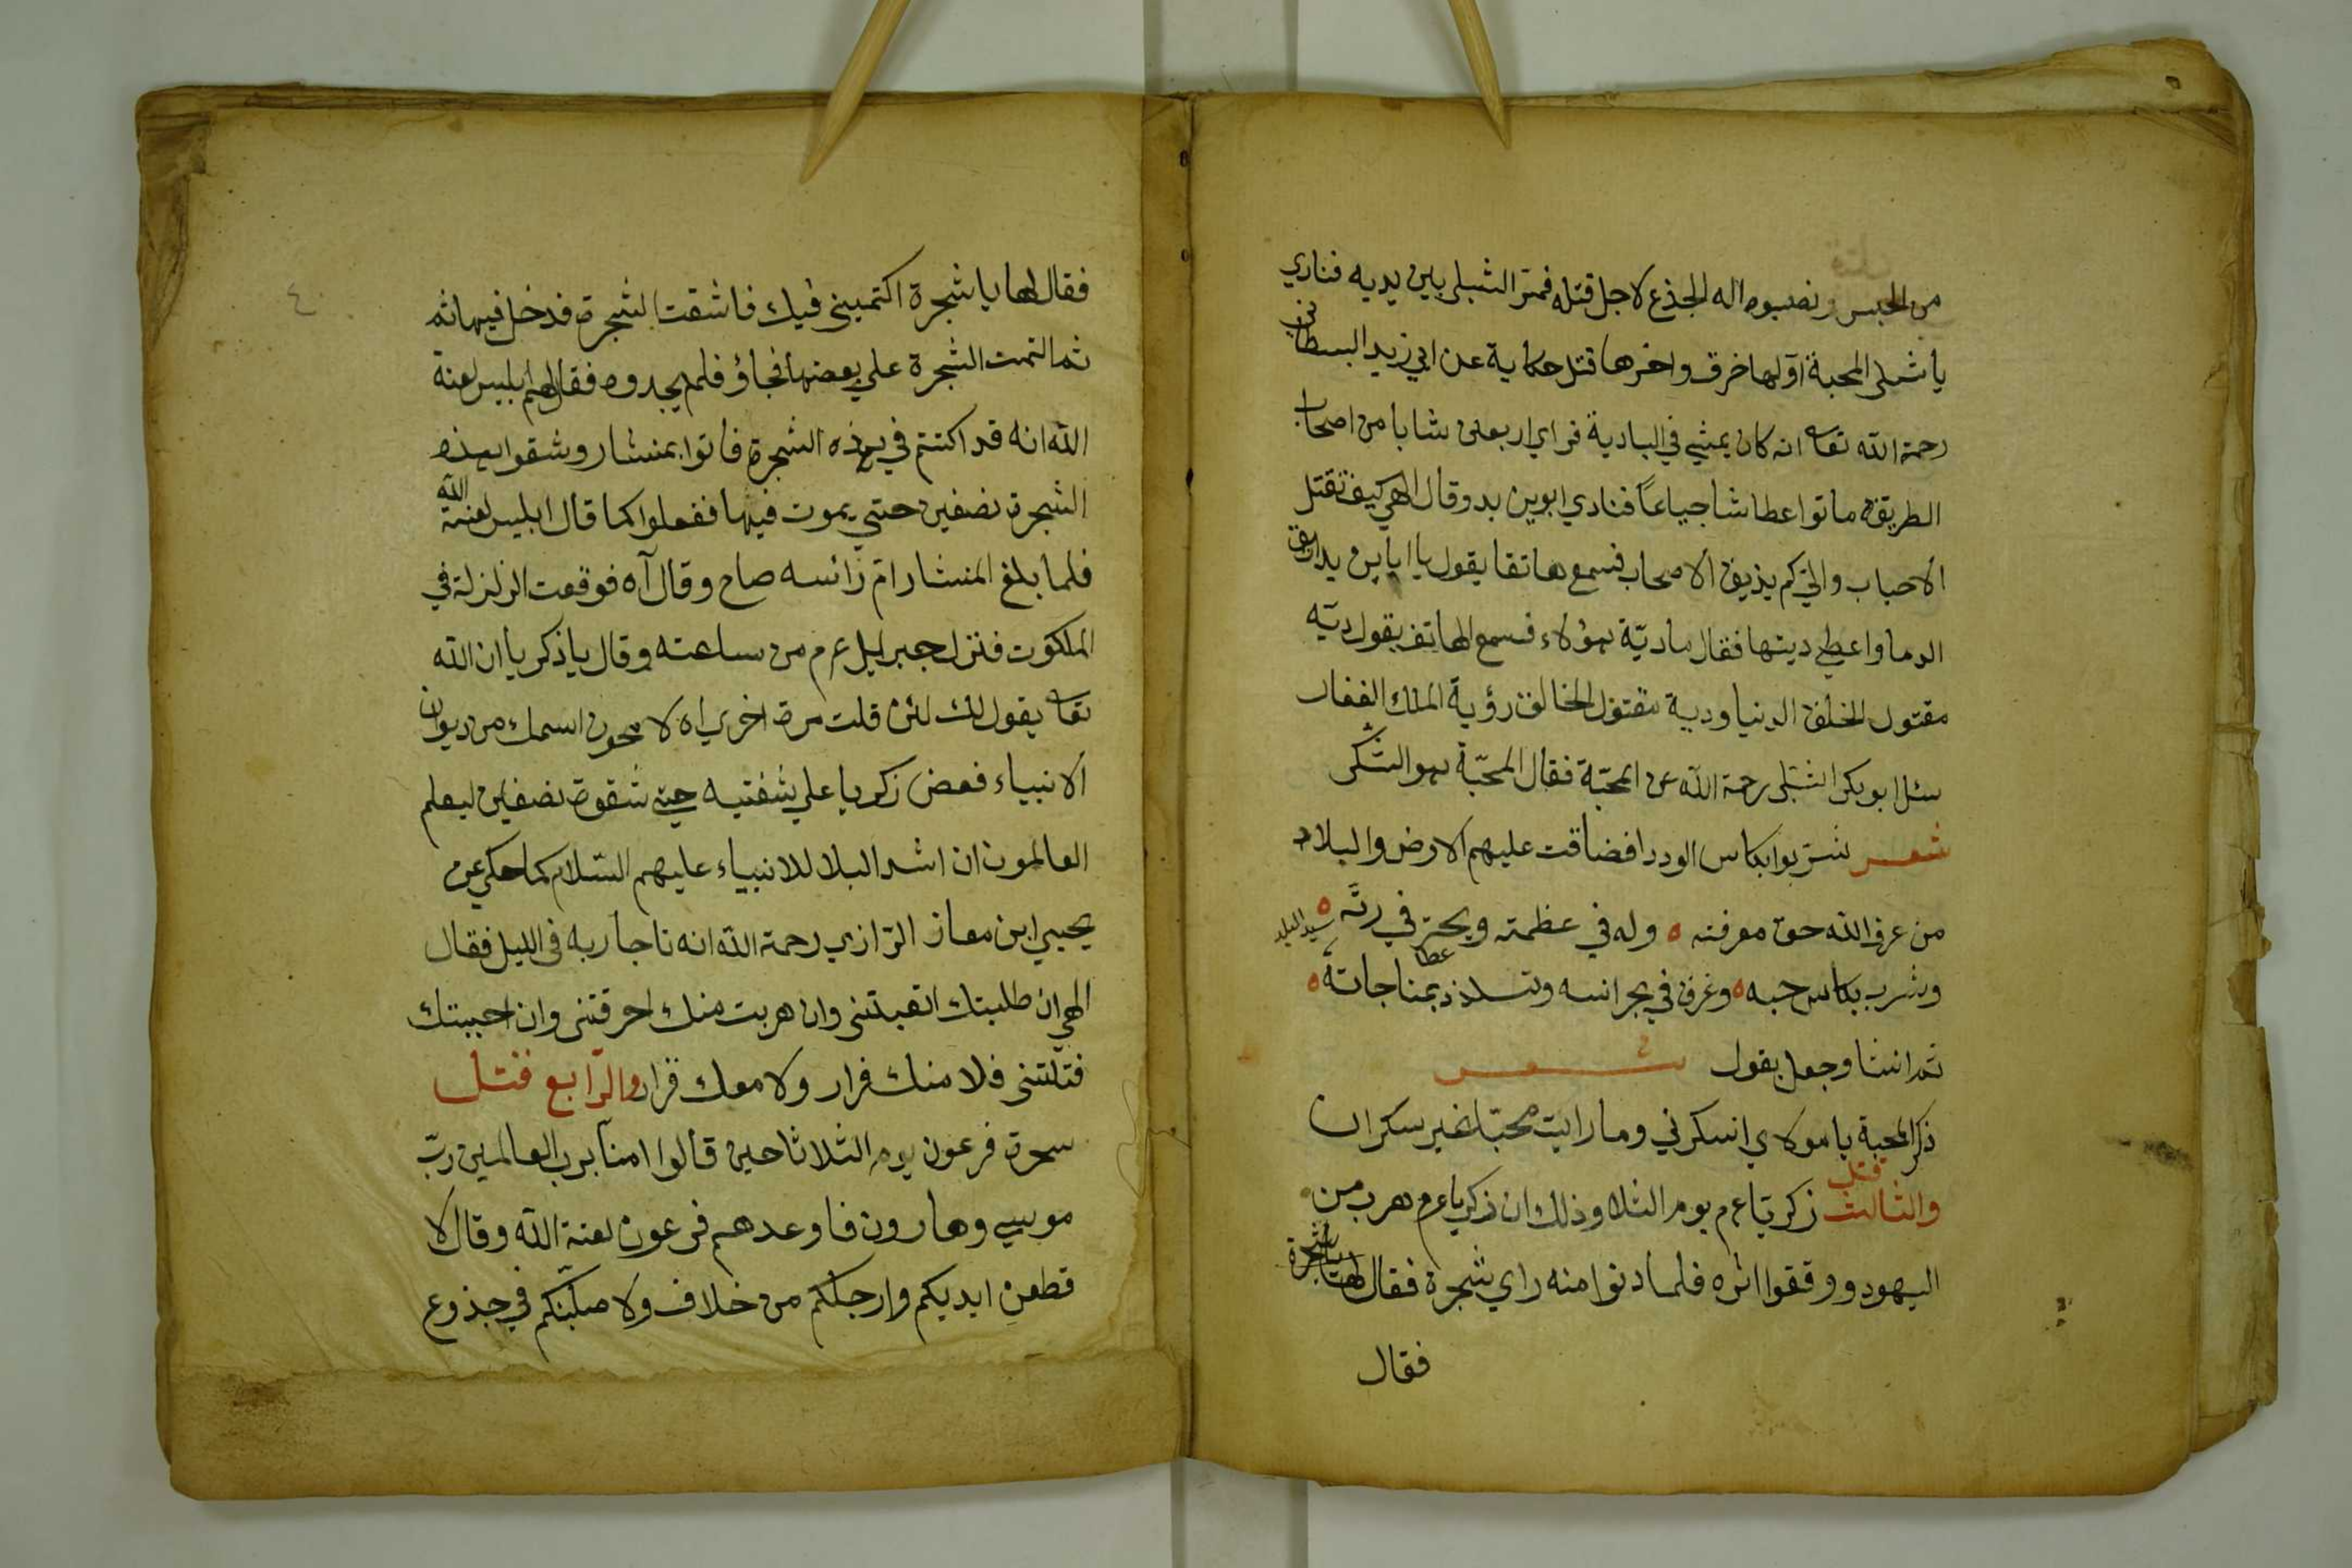 من الحبس ونصبوه اله الجذع لاجل قتله فمتر الشبلى بين يديه فنادي
يا شبلى المحبة آولها خرق واخرها قتل حكاية عن ابي زيد البسطامي
رحمة الله تعا انه كان يمشي في البادية فراي اربعين شابا من اصحاب
الطريقة ماتوا عطاشا جياعًا فنادي ابوين بد وقال الهي كيف تقتل
الاحباب والىّ كم يذيق الاصحاب فسمع هاتفا يقول يا ابا يزيد اريق
الدما واعطي ديتها فقال ماديّة هؤلاء فسمع الهاتف يقول ديّه
مقتول الخلق الدنيا ودية مقتول الخالق رؤية الملك الغفار
سئل ابو بكر الشبلى رحمة الله عن المحبّة فقال المحبّة هو السّكر
شعر شربوا بكاس الوددا فضاقت عليهم الارض والبلاد
من عرف الله حق معرفته ه وله في عظمته ويحيّر في ربّه ه
وشرب بكاس حبه ه وغرق في بحر انسه وتلذذ بمناجاته ه
ثم انشا وجعل يقول شعر
ذكر المحبة يا مولاي اسكرني وما رايت محبّا غير سكران
والثالث قتل زكريّا عم يوم الثلا وذلك ان زكريا عم هرب من
اليهود ووقفوا اثره فلما دنوا منه راي شجرة فقال لها يا شجرة
فقال
٤٠
فقال لها يا شجرة اكتمينى فيك فاشقت الشجرة فدخل فيها ثم
ثم التمت الشجرة علي بعضها فجاؤ فلم يجدوه فقال لهم ابليس لعنة
الله انه قد اكتتم في هذه الشجرة فاتوا بمنشار وشقوا بهذه
الشجرة نصفين حتي يموت فيها ففعلوا كما قال ابليس لعنة الله
فلما بلغ المنشار امّ رائسه صاح وقال آه فوقعت الزلزلة في
الملكوت فنزل جبرايل عم من ساعته وقال يا ذكريا ان الله
تعا يقول لك لئن قلت مرة اخري اه لا محون اسمك من ديوان
الانبياء فعض زكريا علي شفتيه حتي شقوه نصفين ليعلم
العالمون ان اشد البلا للانبياء عليهم السّلام كما حكي عن
يحيي ابن معاز الرّازي رحمة الله انه ناجا ربه فى الليل فقال
الهي ان طلبتك اتعبتنى وان هربت منك احرقتنى وان احببتك
قتلتنى فلا منك فرار ولا معك قرار والرّابع قتل
سحرة فرعون يوم الثلاثا حين قالوا امنّا برب العالمين ربّ
موسي وهارون فاوعدهم فرعون لعنة الله وقال لا
قطعن ايديكم وارجلكم من خلاف ولا صلّبنّكم في جذوع